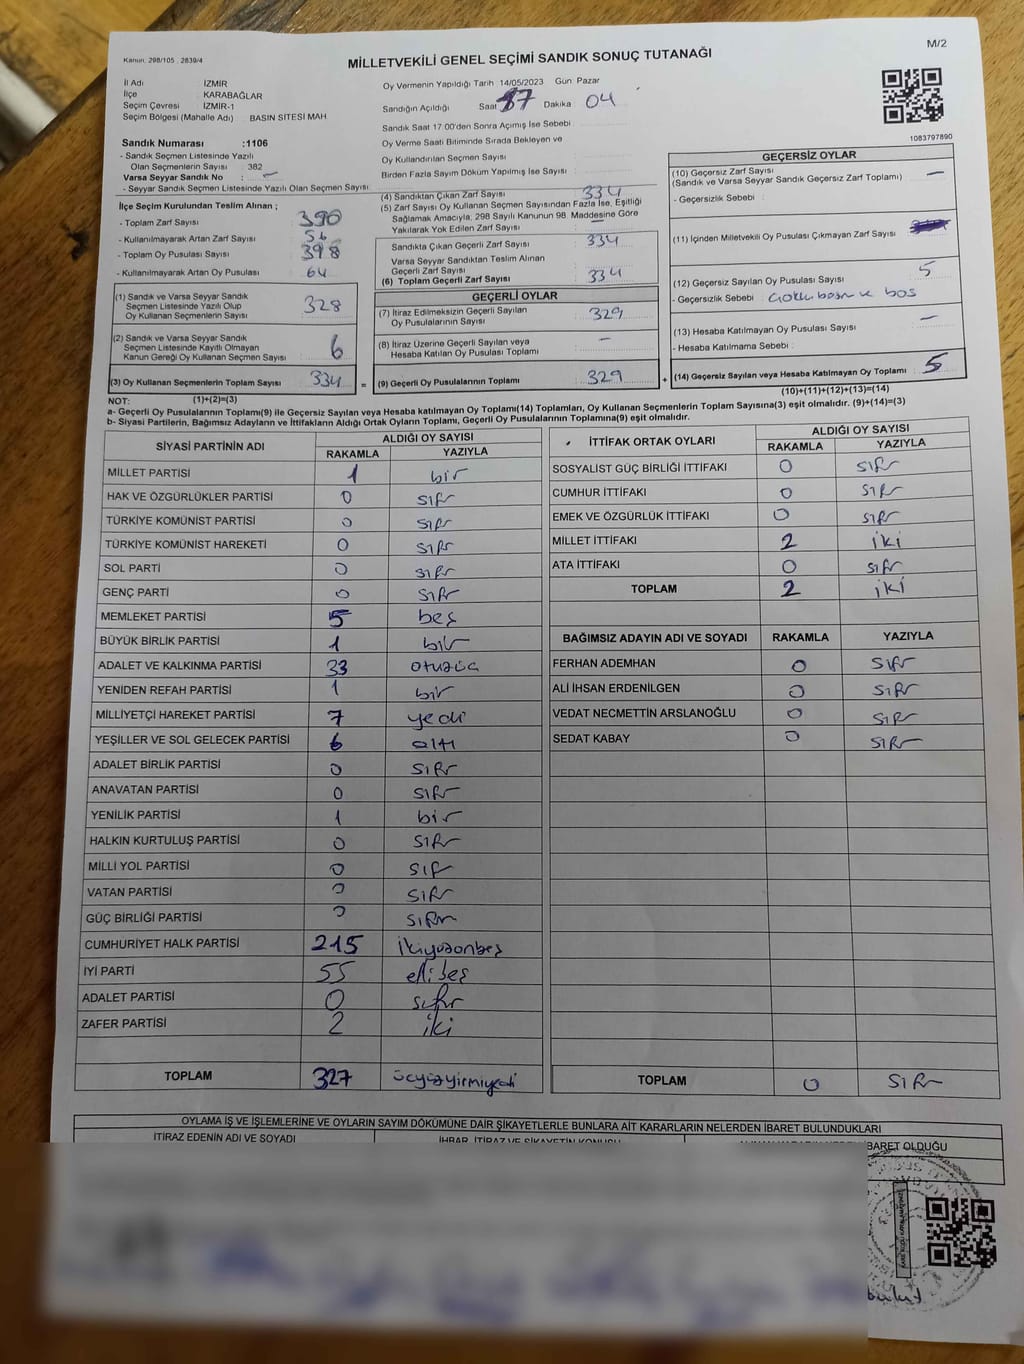 M/2
Kanun: 298/105 , 2839/4
MİLLETVEKİLİ GENEL SEÇİMİ SANDIK SONUÇ TUTANAĞI
İl Adı İZMİR
İlçe KARABAĞLAR
Seçim Çevresi İZMİR-1
Seçim Bölgesi (Mahalle Adı) . BASIN SİTESİ MAH
Oy Vermenin Yapıldığı Tarih 14/05/2023 Gün Pazar
Sandığın Açıldığı Saat 17 Dakika 04
Sandık Saat 17:00'den Sonra Açımış İse Sebebi :
Oy Verme Saati Bitiminde Sırada Bekleyen ve
Oy Kullandırılan Seçmen Sayısı
Birden Fazla Sayım Döküm Yapılmış İse Sayısı :
1083797890
Sandık Numarası :1106
- Sandık Seçmen Listesinde Yazılı
Olan Seçmenlerin Sayısı : 382
Varsa Seyyar Sandık No : -
- Seyyar Sandık Seçmen Listesinde Yazılı Olan Seçmen Sayısı
İlçe Seçim Kurulundan Teslim Alınan ;
- Toplam Zarf Sayısı 390
- Kullanılmayarak Artan Zarf Sayısı 56
- Toplam Oy Pusulası Sayısı 398
- Kullanılmayarak Artan Oy Pusulası 64
(1) Sandık ve Varsa Seyyar Sandık
Seçmen Listesinde Yazılı Olup
Oy Kullanan Seçmenlerin Sayısı 328
(2) Sandık ve Varsa Seyyar Sandık
Seçmen Listesinde Kayıtlı Olmayan
Kanun Gereği Oy Kullanan Seçmen Sayısı 6
(3) Oy Kullanan Seçmenlerin Toplam Sayısı 334 =
(4) Sandıktan Çıkan Zarf Sayısı 334
(5) Zarf Sayısı Oy Kullanan Seçmen Sayısından Fazla İse, Eşitliği
Sağlamak Amacıyla; 298 Sayılı Kanunun 98 Maddesine Göre
Yakılarak Yok Edilen Zarf Sayısı -
Sandıkta Çıkan Geçerli Zarf Sayısı : 334
Varsa Seyyar Sandıktan Teslim Alınan
Geçerli Zarf Sayısı
(6) Toplam Geçerli Zarf Sayısı : 334
GEÇERLİ OYLAR
(7) İtiraz Edilmeksizin Geçerli Sayılan
Oy Pusulalarının Sayısı 329
(8) İtiraz Üzerine Geçerli Sayılan veya
Hesaba Katılan Oy Pusulası Toplamı -
(9) Geçerli Oy Pusulalarının Toplamı 329 +
GEÇERSİZ OYLAR
(10) Geçersiz Zarf Sayısı
(Sandık ve Varsa Seyyar Sandık Geçersiz Zarf Toplamı) -
- Geçersizlik Sebebi :
(11) İçinden Milletvekili Oy Pusulası Çıkmayan Zarf Sayısı
(12) Geçersiz Sayılan Oy Pusulası Sayısı 5
- Geçersizlik Sebebi : Çoklu basım ve boş
(13) Hesaba Katılmayan Oy Pusulası Sayısı : -
- Hesaba Katılmama Sebebi :
(14) Geçersiz Sayılan veya Hesaba Katılmayan Oy Toplamı 5
(10)+(11)+(12)+(13)=(14)
NOT: (1)+(2)=(3)
a- Geçerli Oy Pusulalarının Toplamı(9) ile Geçersiz Sayılan veya Hesaba katılmayan Oy Toplamı(14) Toplamları, Oy Kullanan Seçmenlerin Toplam Sayısına(3) eşit olmalıdır. (9)+(14)=(3)
b- Siyasi Partilerin, Bağımsız Adayların ve İttifakların Aldığı Ortak Oyların Toplamı, Geçerli Oy Pusulalarının Toplamına(9) eşit olmalıdır.
SİYASİ PARTİNİN ADI ALDIĞI OY SAYISI
RAKAMLA YAZIYLA
MİLLET PARTİSİ 1 bir
HAK VE ÖZGÜRLÜKLER PARTİSİ 0 sıfır
TÜRKİYE KOMÜNİST PARTİSİ 0 sıfır
TÜRKİYE KOMÜNİST HAREKETİ 0 sıfır
SOL PARTİ 0 sıfır
GENÇ PARTİ 0 sıfır
MEMLEKET PARTİSİ 5 beş
BÜYÜK BİRLİK PARTİSİ 1 bir
ADALET VE KALKINMA PARTİSİ 33 otuzüç
YENİDEN REFAH PARTİSİ 1 bir
MİLLİYETÇİ HAREKET PARTİSİ 7 yedi
YEŞİLLER VE SOL GELECEK PARTİSİ 6 altı
ADALET BİRLİK PARTİSİ 0 sıfır
ANAVATAN PARTİSİ 0 sıfır
YENİLİK PARTİSİ 1 bir
HALKIN KURTULUŞ PARTİSİ 0 sıfır
MİLLİ YOL PARTİSİ 0 sıfır
VATAN PARTİSİ 0 sıfır
GÜÇ BİRLİĞİ PARTİSİ 0 sıfır
CUMHURİYET HALK PARTİSİ 215 ikiyüzonbeş
İYİ PARTİ 55 ellibeş
ADALET PARTİSİ 0 sıfır
ZAFER PARTİSİ 2 iki
TOPLAM 327 üçyüzyirmiyedi
İTTİFAK ORTAK OYLARI ALDIĞI OY SAYISI
RAKAMLA YAZIYLA
SOSYALİST GÜÇ BİRLİĞİ İTTİFAKI 0 sıfır
CUMHUR İTTİFAKI 0 sıfır
EMEK VE ÖZGÜRLÜK İTTİFAKI 0 sıfır
MİLLET İTTİFAKI 2 iki
ATA İTTİFAKI 0 sıfır
TOPLAM 2 iki
BAĞIMSIZ ADAYIN ADI VE SOYADI RAKAMLA YAZIYLA
FERHAN ADEMHAN 0 sıfır
ALİ İHSAN ERDENİLGEN 0 sıfır
VEDAT NECMETTİN ARSLANOĞLU 0 sıfır
SEDAT KABAY 0 sıfır
TOPLAM 0 sıfır
OYLAMA İŞ VE İŞLEMLERİNE VE OYLARIN SAYIM DÖKÜMÜNE DAİR ŞİKAYETLERLE BUNLARA AİT KARARLARIN NELERDEN İBARET BULUNDUKLARI
İTİRAZ EDENİN ADI VE SOYADI İHBAR, İTİRAZ VE ŞİKAYETİN KONUSU BARET OLDUĞU
bulut